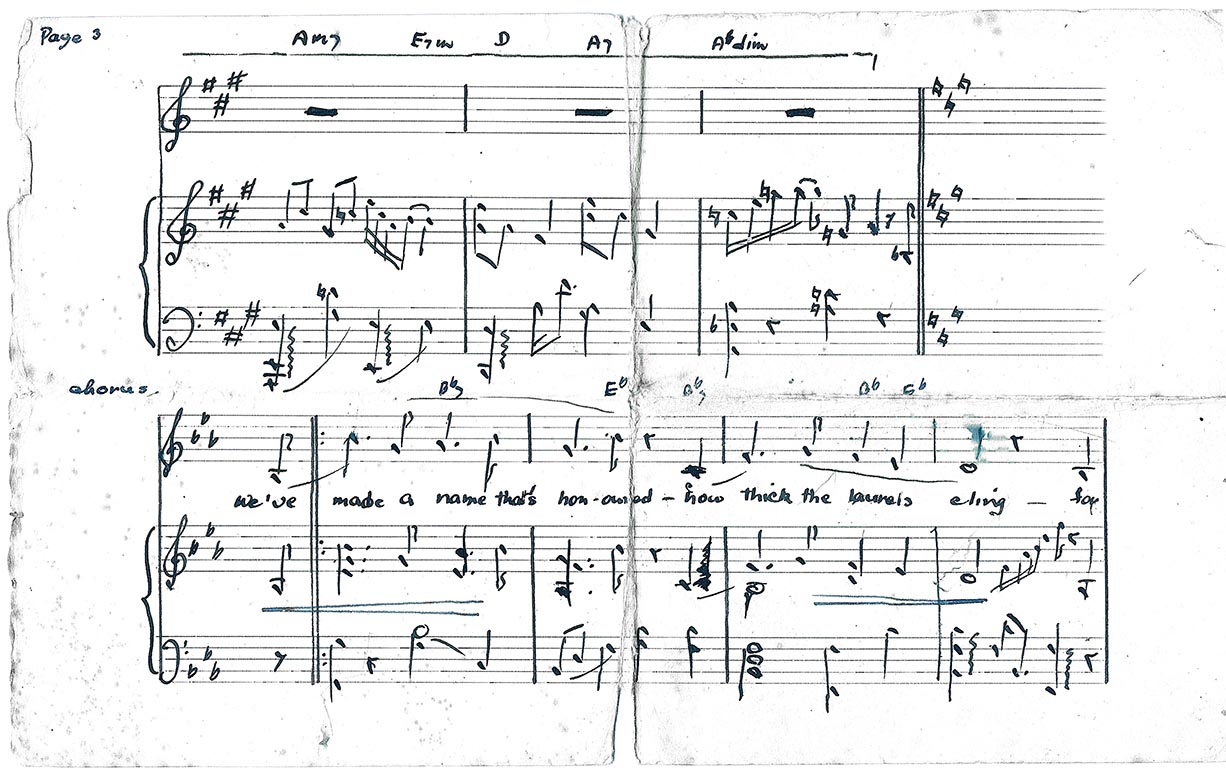 Page 3
Am7 E7m D A7 A♭dim
chorus B♭7 E♭ B♭7 B♭ E♭
we've made a name that's hon-oured - how thick the laurels cling - for